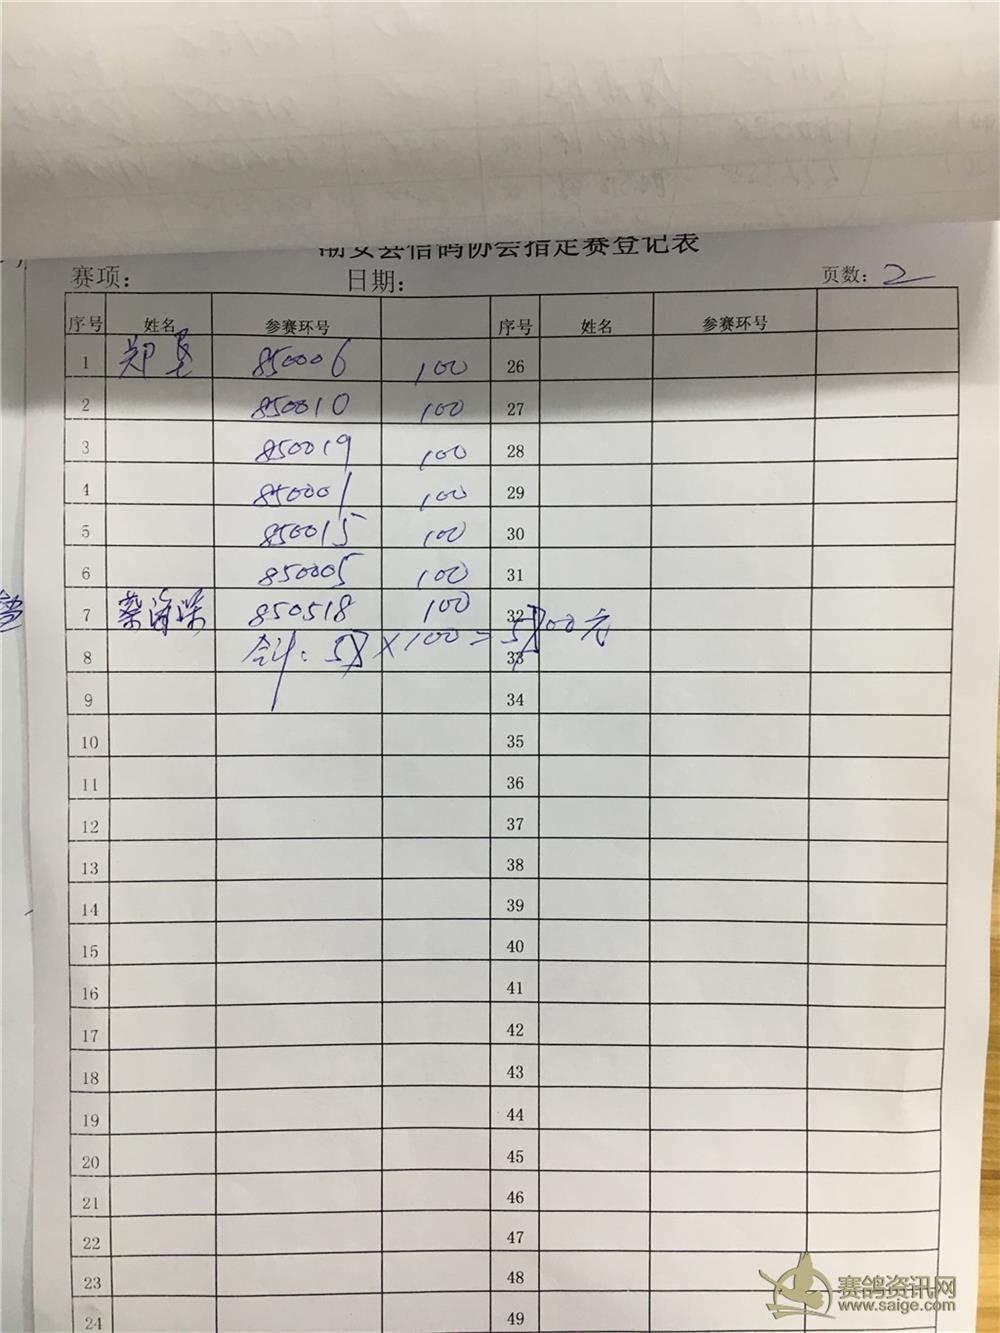 潮安县信鸽协会指定赛登记表
赛项: 日期: 页数: 2
序号 姓名 参赛环号 序号 姓名 参赛环号
1 郑 850006 100 26
2 850010 100 27
3 850019 100 28
4 850001 100 29
5 850015 100 30
6 850005 100 31
7 蔡海深 850518 100 32
8 合计: × 100 = 00元 33
9 34
10 35
11 36
12 37
13 38
14 39
15 40
16 41
17 42
18 43
19 44
20 45
21 46
22 47
23 48
24 49
赛鸽资讯网
www.saige.com